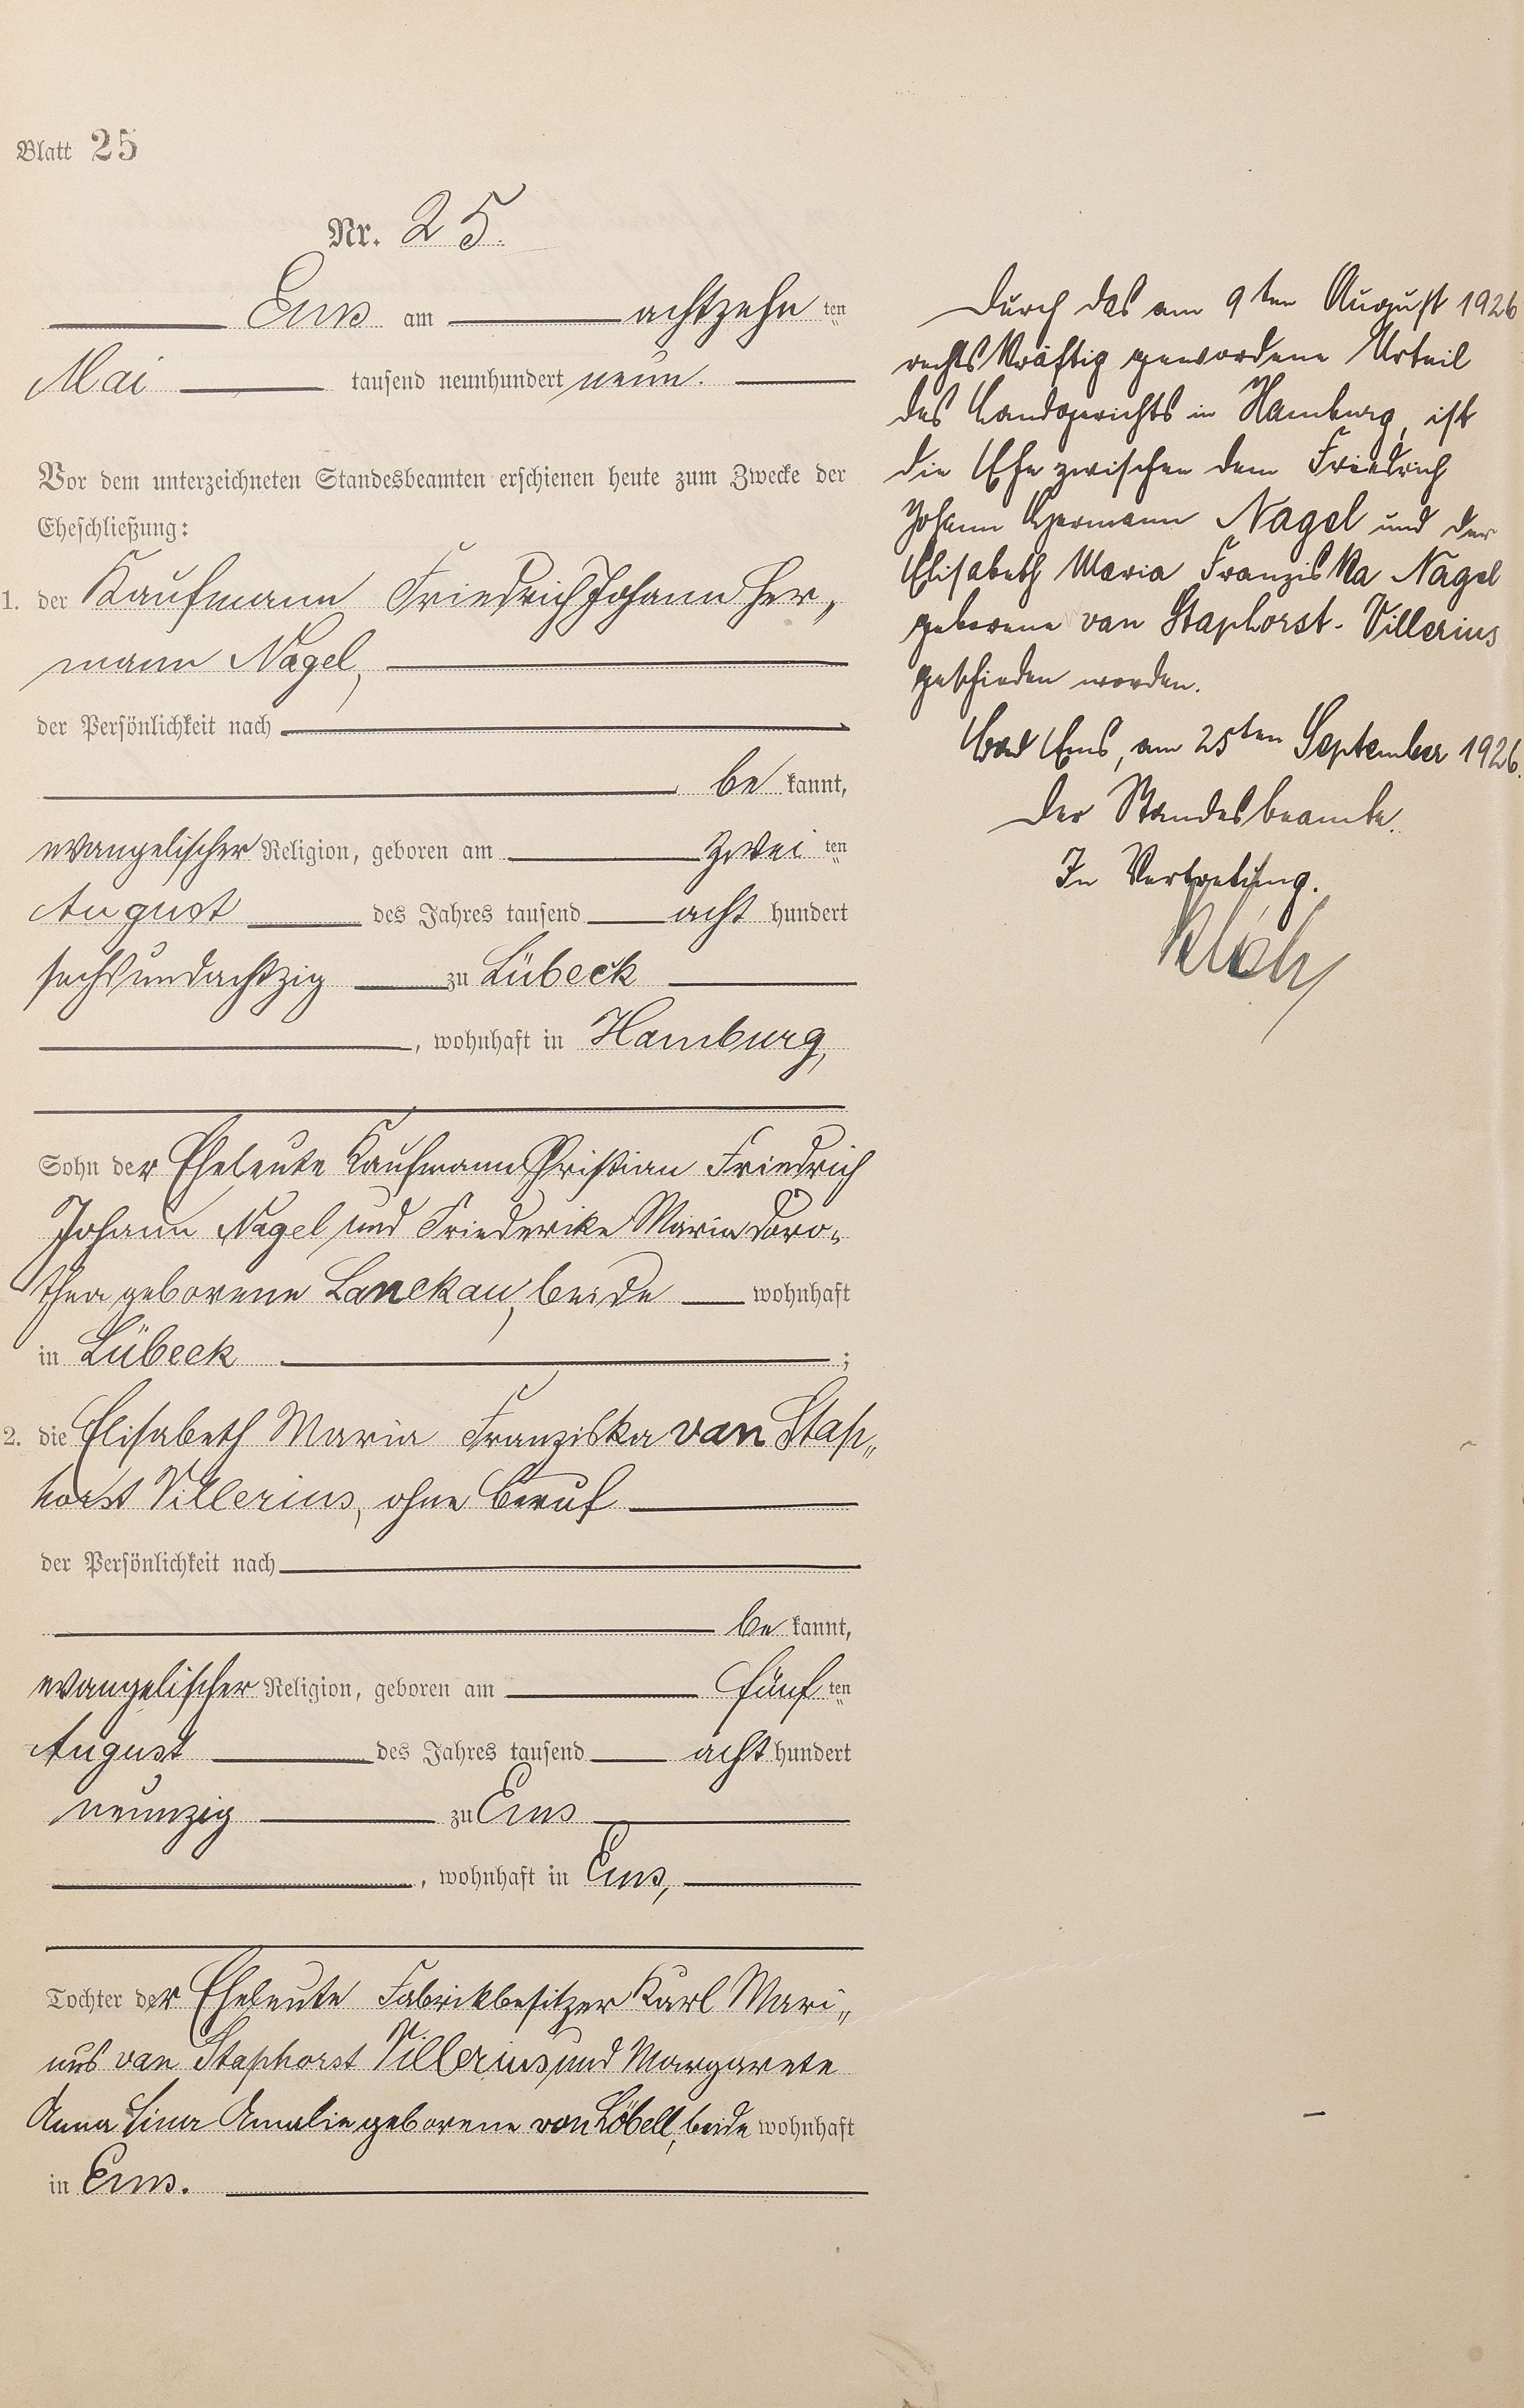 Blatt 25
Nr. 25.
Ems am achtzehn ten
Mai tausend neunhundert neun.
Vor dem unterzeichneten Standesbeamten erschienen heute zum Zwecke der
Eheschließung:
1. der Kaufmann Friedrich Johann Her„
mann Nagel,
der Persönlichkeit nach
be kannt,
evangelischer Religion, geboren am zwei ten
August des Jahres tausend acht hundert
sechsundachtzig zu Lübeck
, wohnhaft in Hamburg,
Sohn der Eheleute Kaufmann Christian Friedrich
Johann Nagel und Friederike Maria Doro„
thea geborene Lanckau, beide wohnhaft
in Lübeck ;
2. die Elisabeth Maria Franziska van Stap„
horst Villerius, ohne Beruf
der Persönlichkeit nach
be kannt,
evangelischer Religion, geboren am fünf ten
August des Jahres tausend acht hundert
neunzig zu Ems
, wohnhaft in Ems,
Tochter der Eheleute Fabrikbesitzer Karl Mari„
nus van Staphorst Villerius und Margarete
Anna Lina Amalie geborene von Löbell, beide wohnhaft
in Ems.
Durch das am 9ten August 1926
rechtskräftig gewordene Urteil
des Landgerichts in Hamburg, ist
die Ehe zwischen dem Friedrich
Johann Hermann Nagel und der
Elisabeth Maria Franziska Nagel
geborene van Staphorst-Villerius
geschieden worden.
Bad Ems, am 25ten September 1926.
Der Standesbeamte.
In Vertretung.